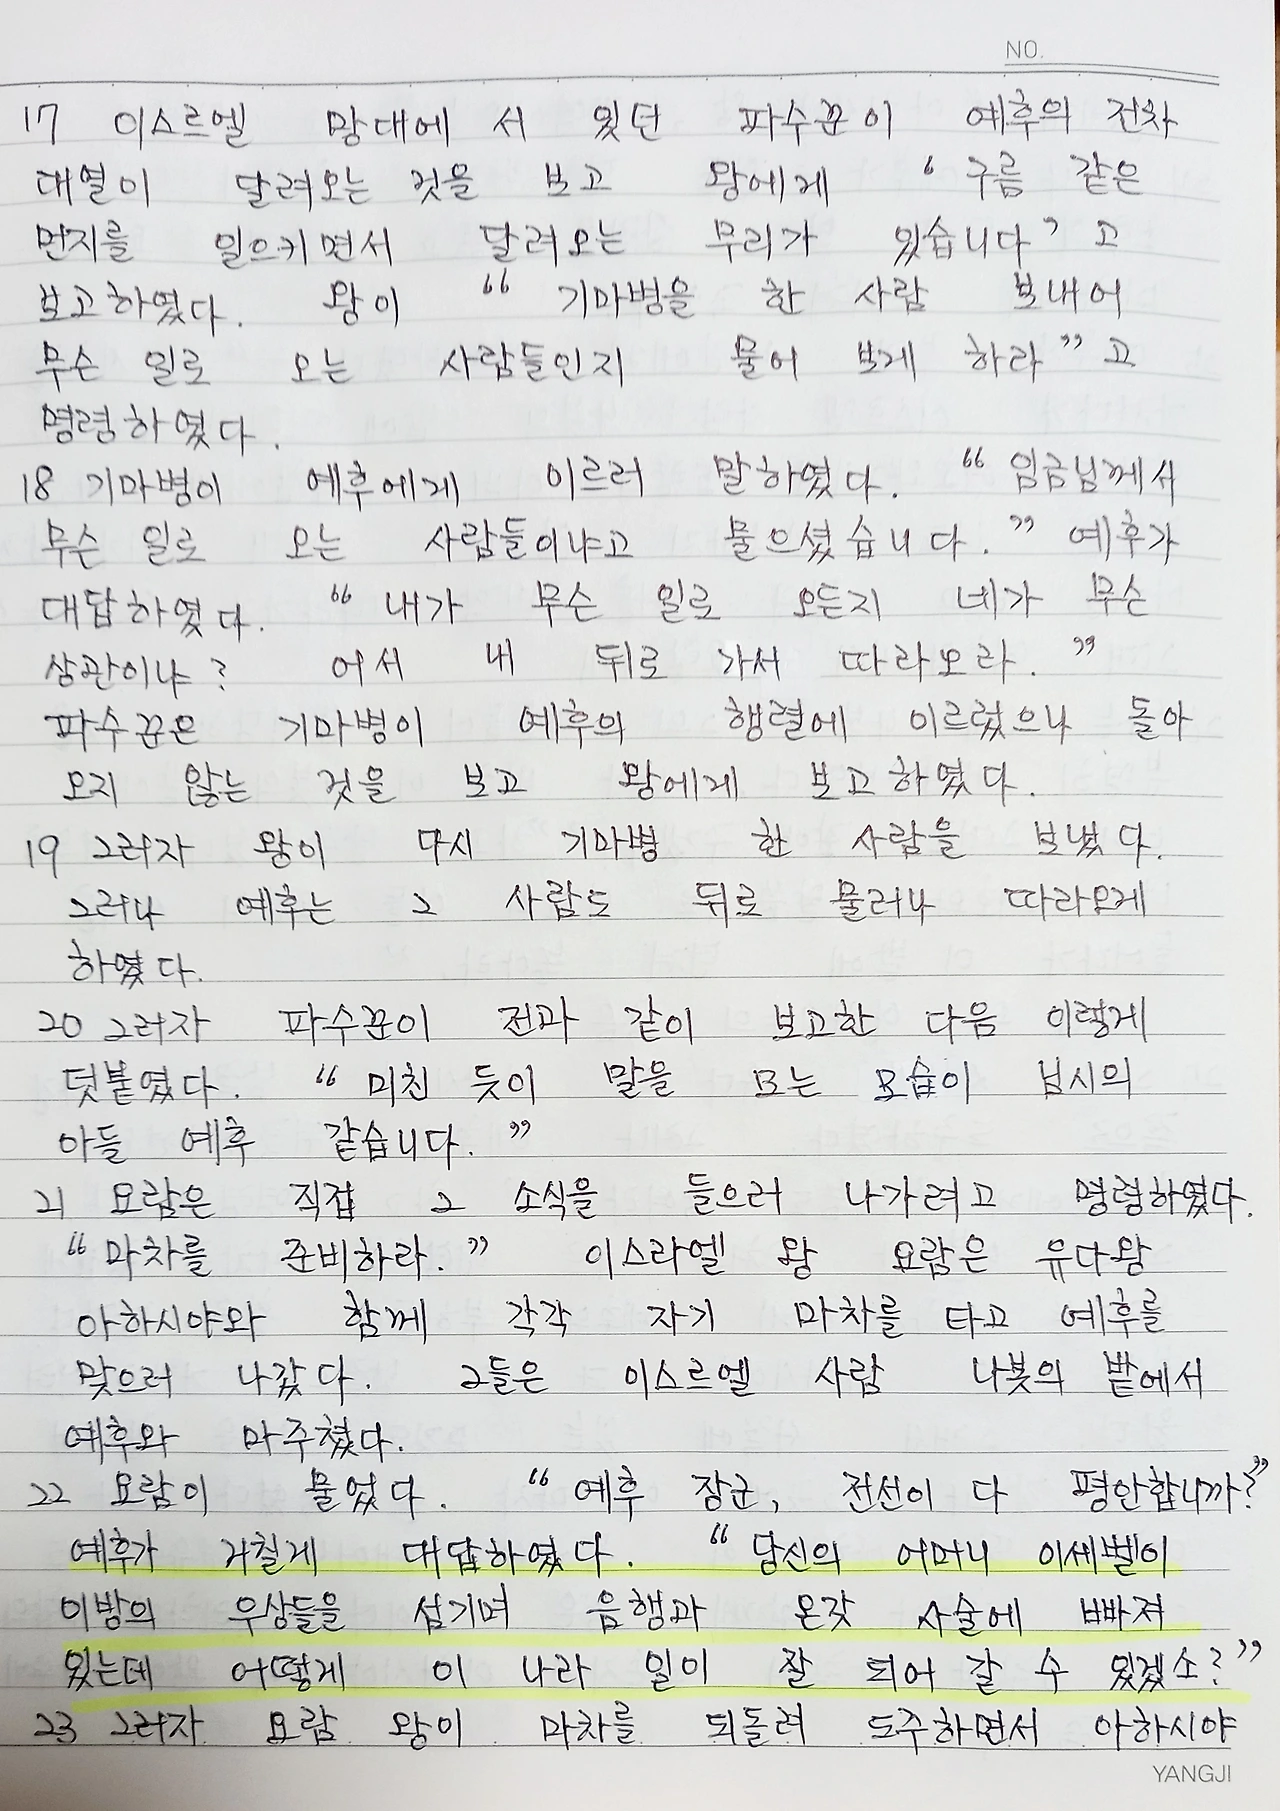 NO.
17 이스르엘 망대에 서 있던 파수꾼이 예후의 전차
대열이 달려오는 것을 보고 왕에게 “구름 같은
먼지를 일으키면서 달려오는 무리가 있습니다”고
보고하였다. 왕이 “기마병을 한 사람 보내어
무슨 일로 오는 사람들인지 물어 보게 하라”고
명령하였다.
18 기마병이 예후에게 이르러 말하였다. “임금님께서
무슨 일로 오는 사람들이냐고 물으셨습니다.” 예후가
대답하였다. “내가 무슨 일로 오든지 네가 무슨
상관이냐? 어서 내 뒤로 가서 따라오라.”
파수꾼은 기마병이 예후의 행렬에 이르렀으나 돌아
오지 않는 것을 보고 왕에게 보고하였다.
19 그러자 왕이 다시 기마병 한 사람을 보냈다.
그러나 예후는 그 사람도 뒤로 물러나 따라오게
하였다.
20 그러자 파수꾼이 전과 같이 보고한 다음 이렇게
덧붙였다. “미친 듯이 말을 모는 모습이 님시의
아들 예후 같습니다.”
21 요람은 직접 그 소식을 들으러 나가려고 명령하였다.
“마차를 준비하라.” 이스라엘 왕 요람은 유다왕
아하시야와 함께 각각 자기 마차를 타고 예후를
맞으러 나갔다. 그들은 이스르엘 사람 나봇의 밭에서
예후와 마주쳤다.
22 요람이 물었다. “예후 장군, 전선이 다 평안합니까?”
예후가 거칠게 대답하였다. “당신의 어머니 이세벨이
이방의 우상들을 섬기며 음행과 온갖 사술에 빠져
있는데 어떻게 이 나라 일이 잘 되어 갈 수 있겠소?”
23 그러자 요람 왕이 마차를 되돌려 도주하면서 아하시야
YANGJI